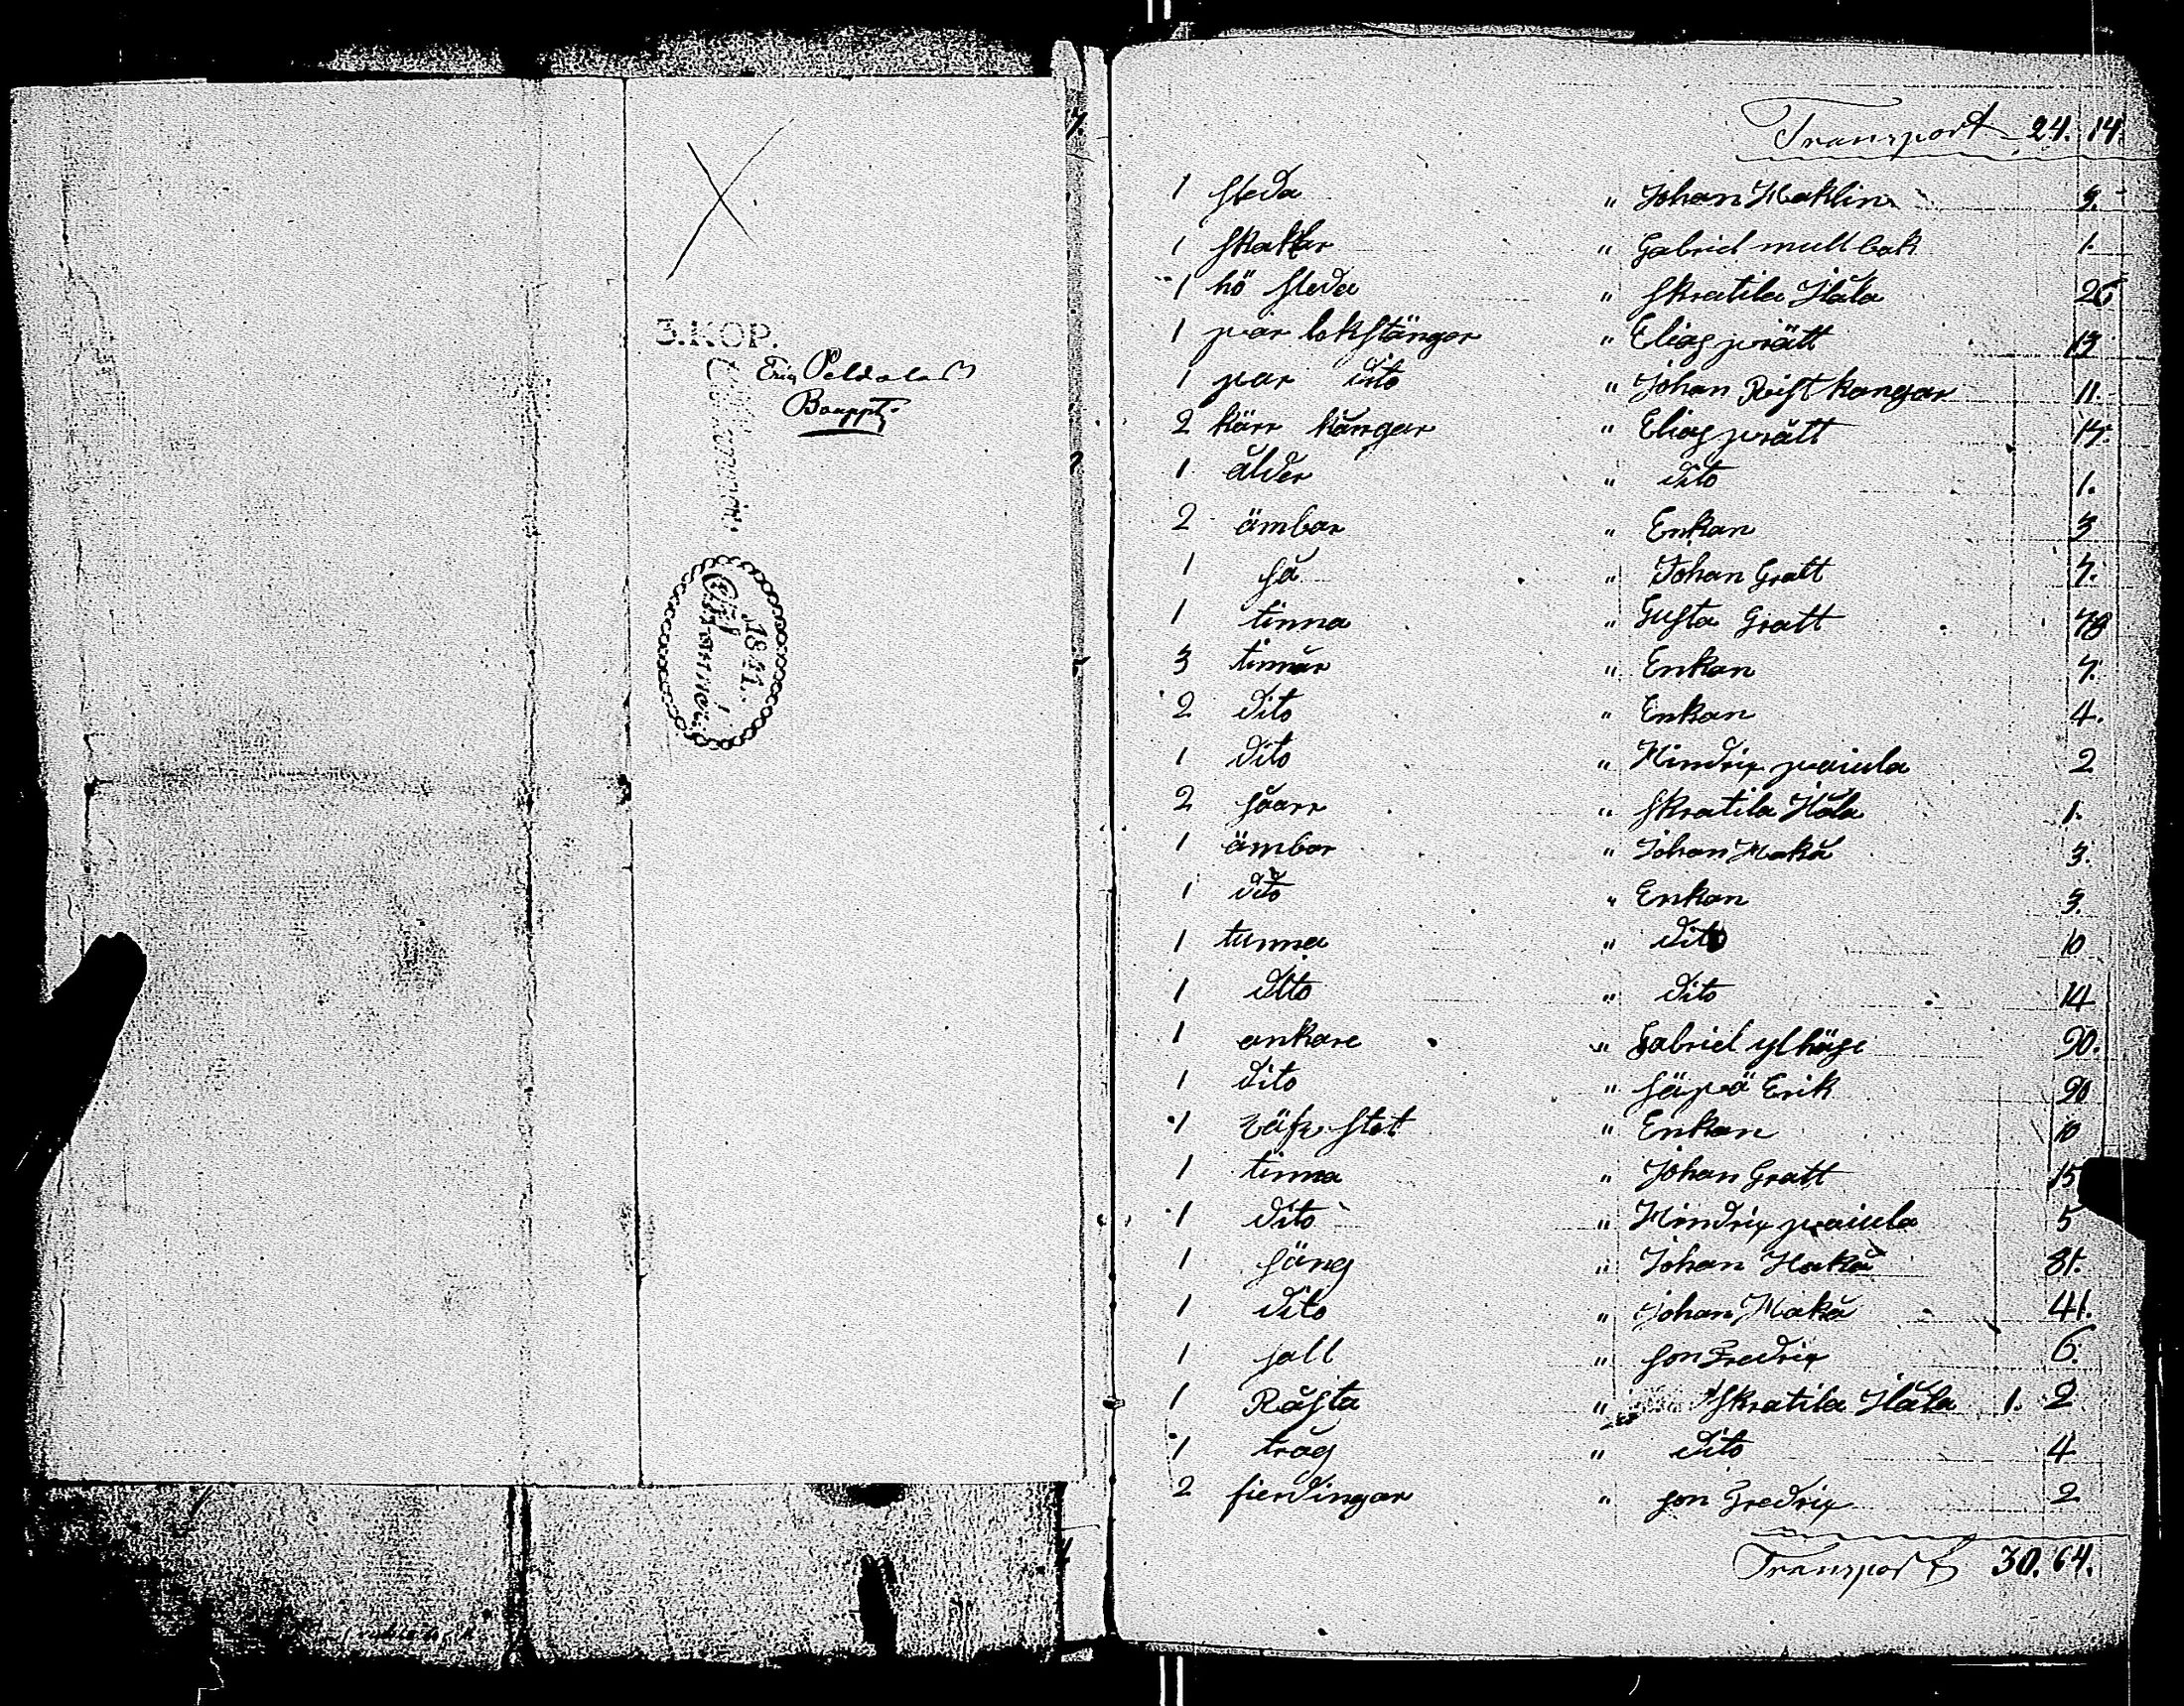 3.KOP.
Eriq Peldolas
Bouppt:
1841.
Transport 24. 14.
1 släda " Johan Haklin 9.
1 skaklar " Gabriel mullbak 1.
1 hö släda " Skratila Håla 26
1 par lokstänger " Elias prätt 13
1 par dito " Johan Reistkangar 11.
2 kärr kångar " Elias prätt 17.
1 ålder " dito 1.
2 ämbar " Enkan 3
1 så " Johan Gratt 7.
1 tinna " Gusta Gratt 78
3 tinnår " Enkan 7.
2 dito " Enkan 4.
1 dito " Hindrix pairila 2
2 såarr " Skratila Håla 1.
1 ämbar " Johan Hakå 3.
1 dito " Enkan 3.
1 tunna " dito 10
1 dito " dito 14
1 ankare " Gabriel ylhäge 20.
1 dito " säpä Erik 20
1 väfstol " Enkan 10
1 tinna " Johan Gratt 15
1 dito " Hindrix pairila 5
1 säng " Johan Hakå 81.
1 dito " Johan Hakå 41.
1 sall " son Fredrix 6.
1 Råsta " Skratila Håla 1. 2
1 tråg " dito 4
2 fierdingar " son Fredrix 2
Transport 30. 64.